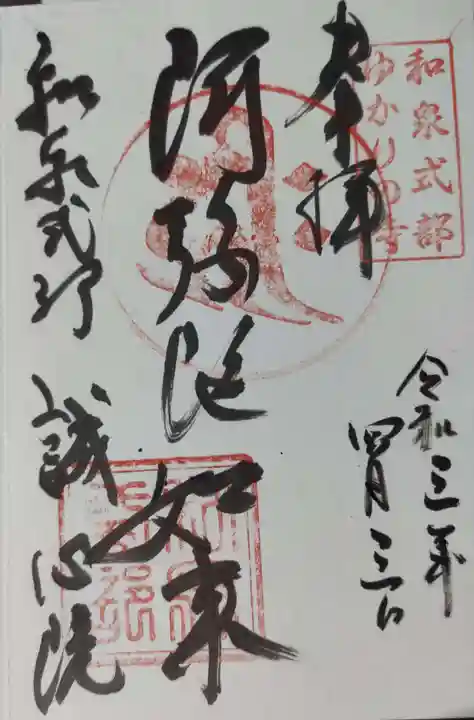 和泉式部
ゆかりの寺
奉拝
令和三年
四月三日
阿弥陀如来
和泉式部 誠心院